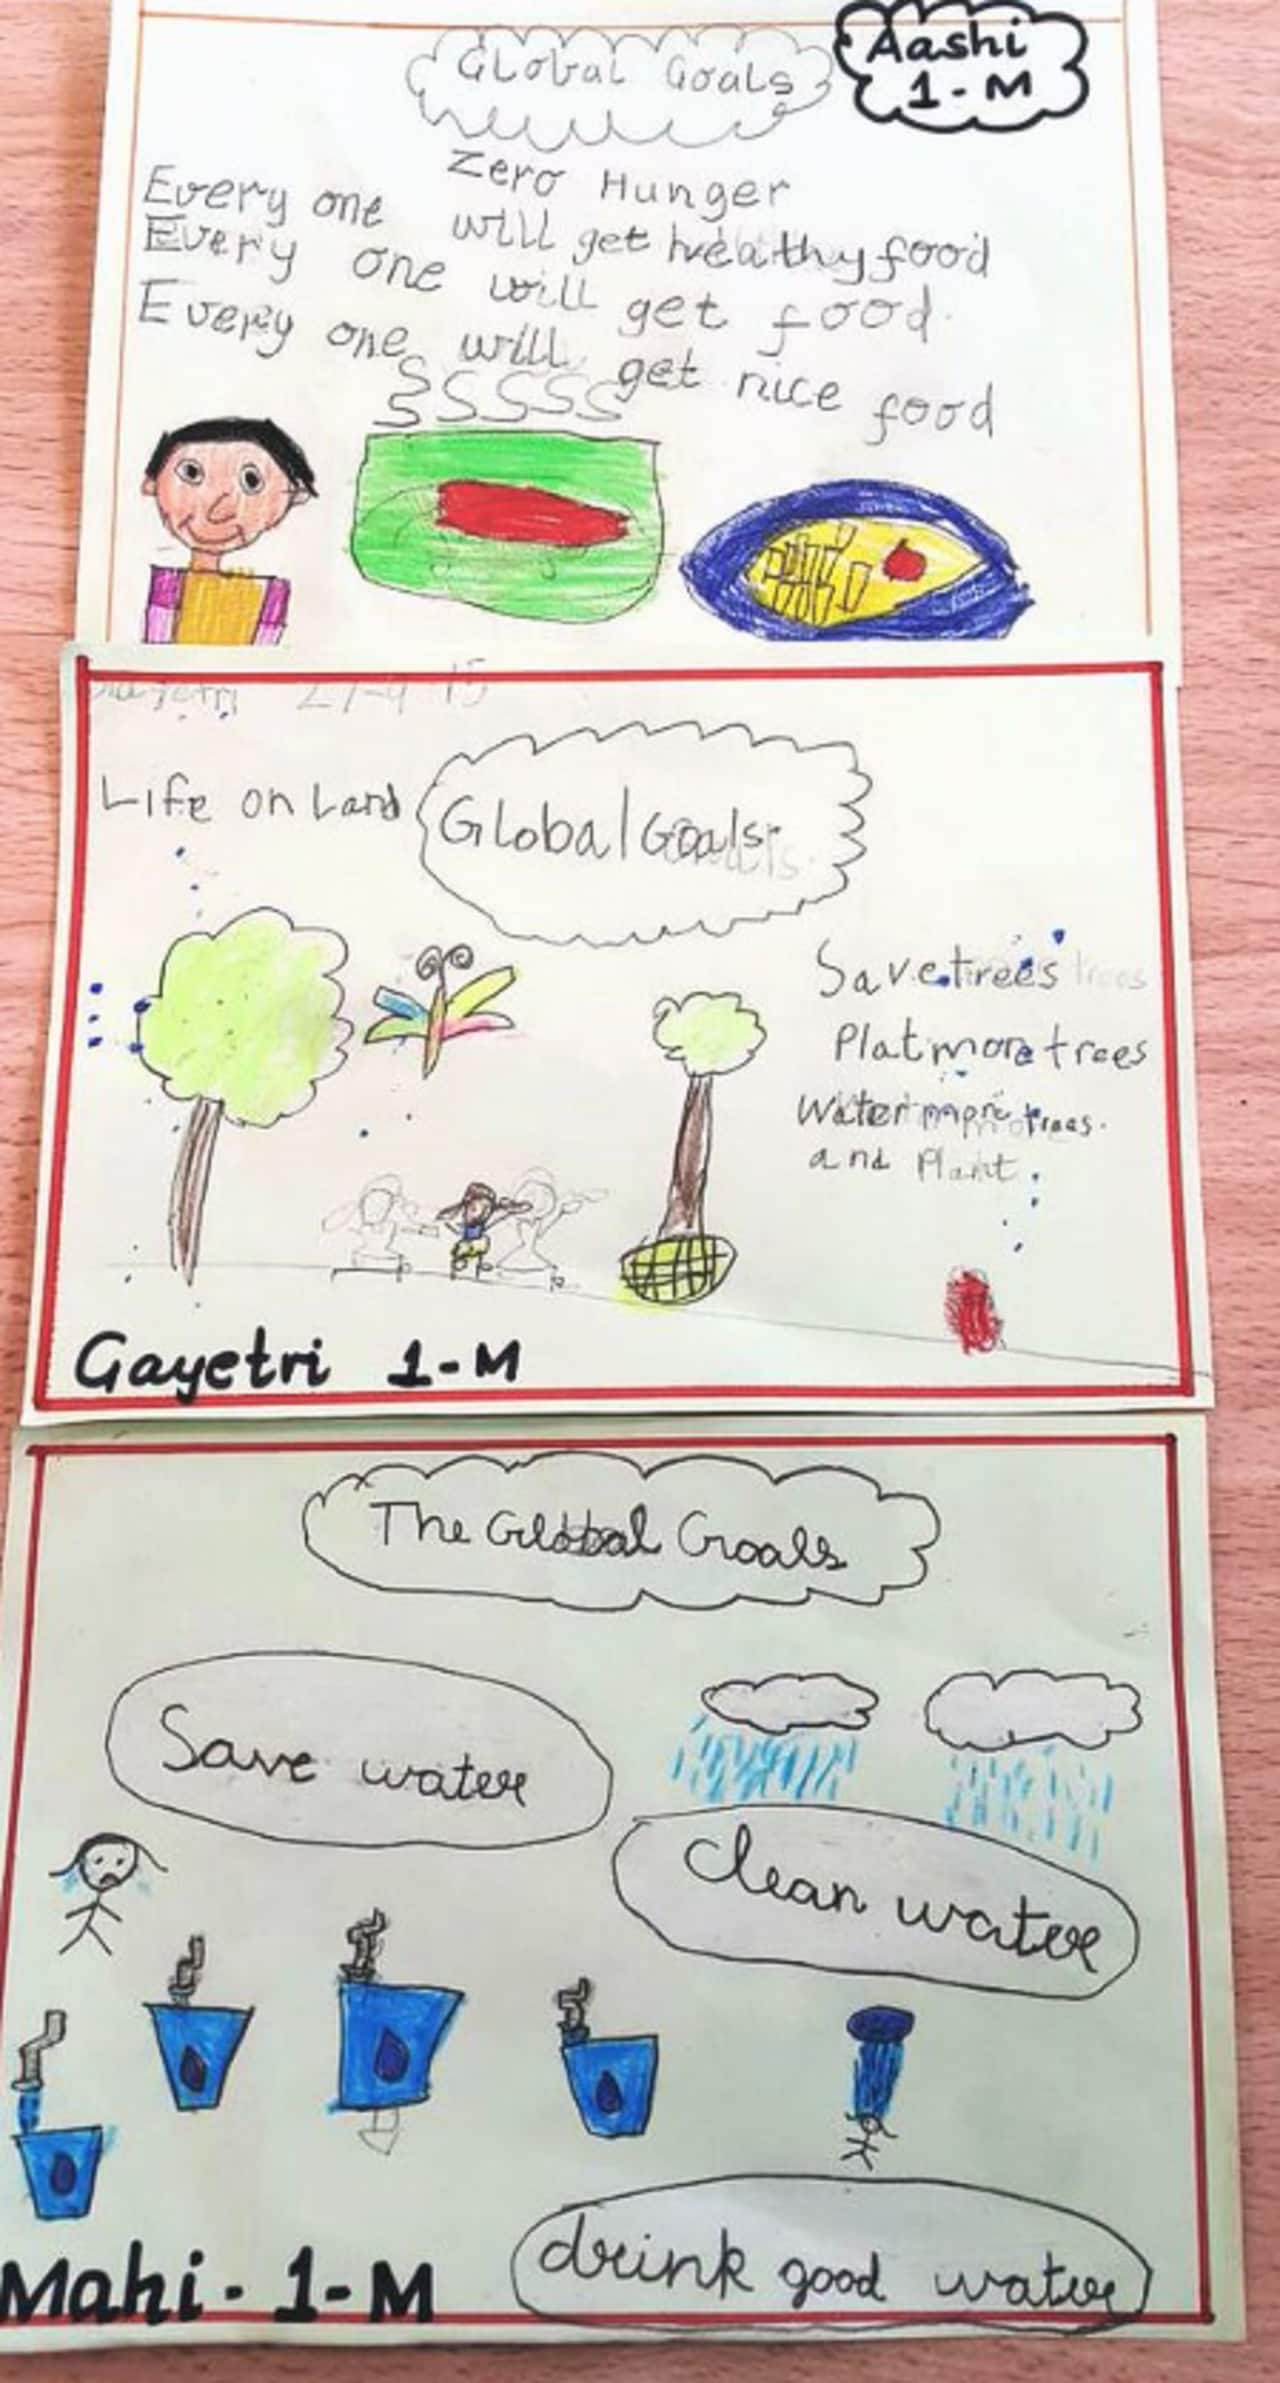 Global Goals
Aashi
1-M
Zero Hunger
Every one will get healthy food
Every one will get food.
Every one will get nice food
Life on Land
Global Goals
Save trees trees
Plat more trees
Water more trees.
and Plant.
Gayetri 1-M
The Global Goals
Save water
clean water
drink good water
Mahi - 1-M